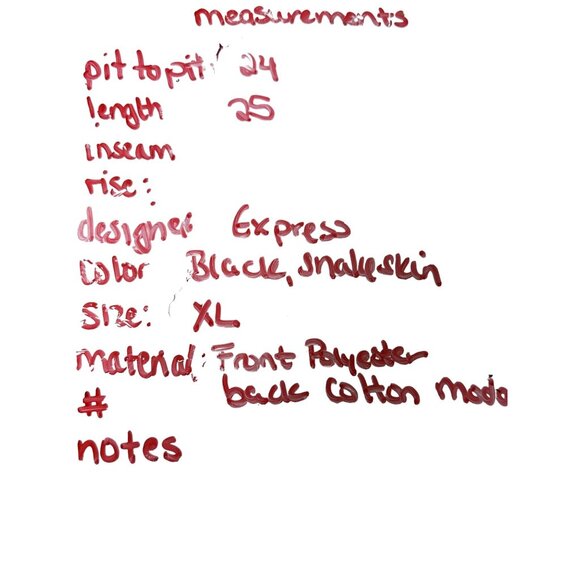 measurements
pit to pit: 24
length 25
inseam
rise:
designer Express
color Black, snakeskin
size: XL
material: Front Polyester
back cotton moda
#
notes